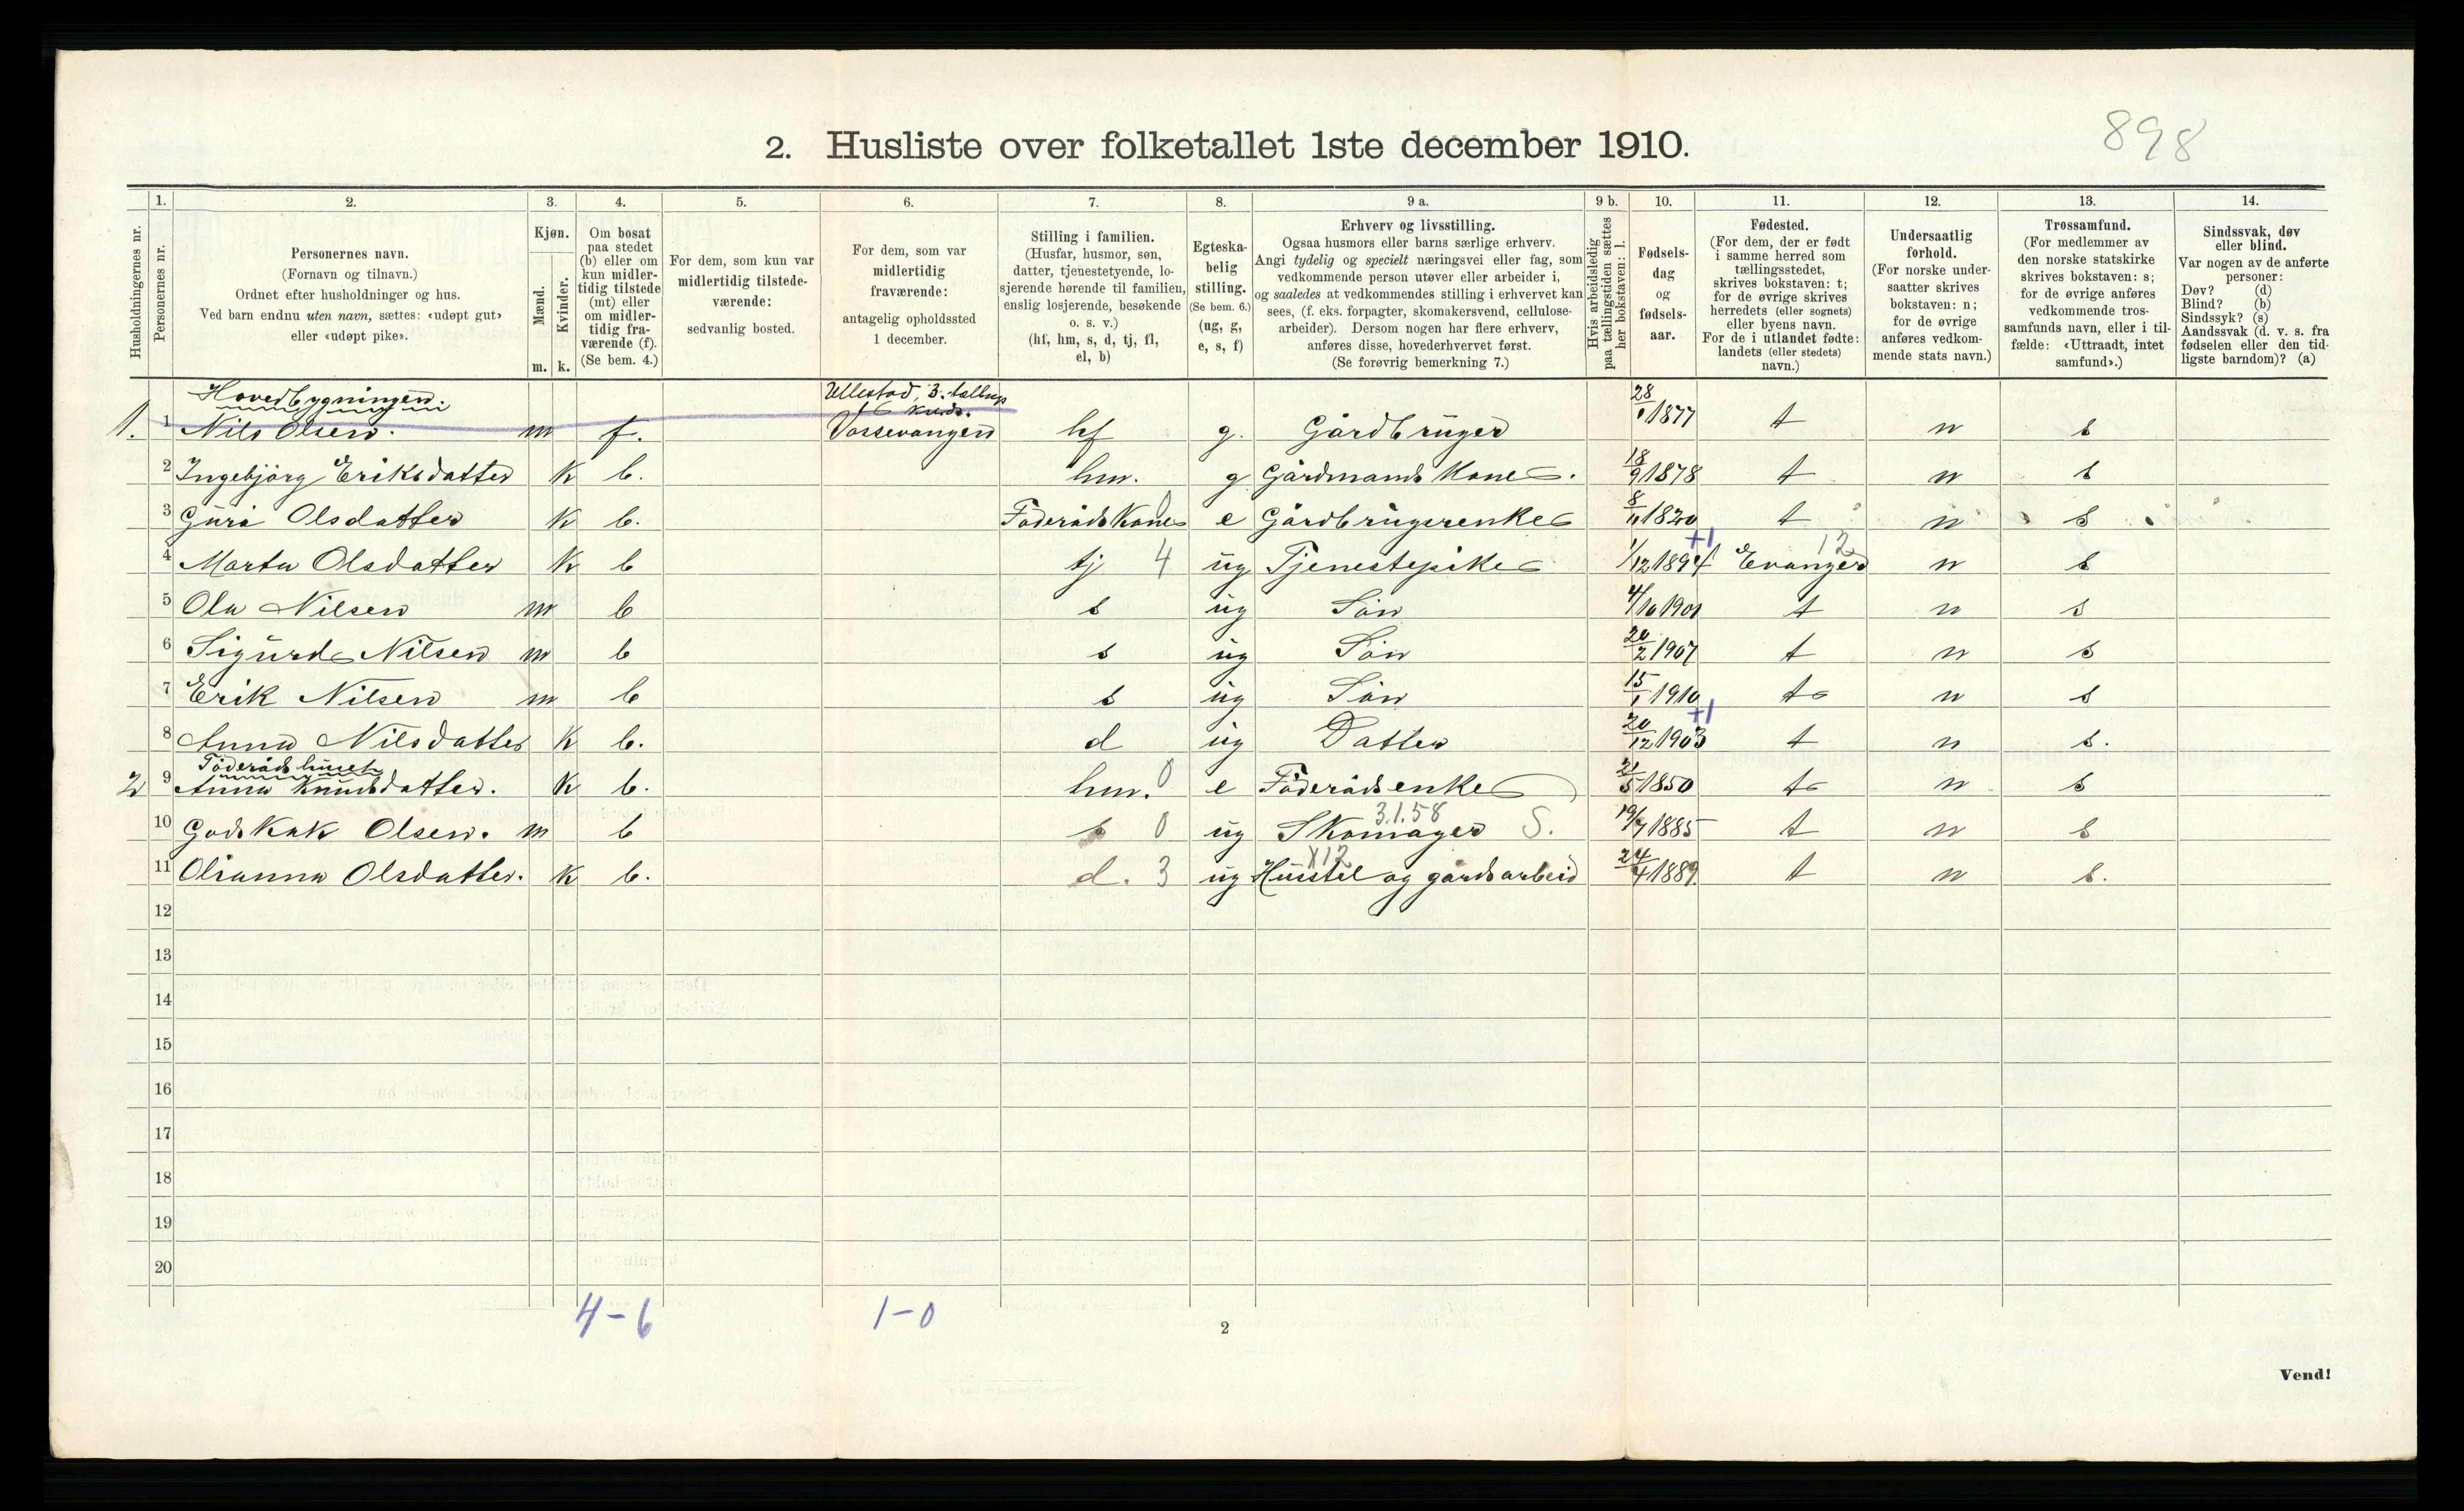 898
2. Husliste over folketallet 1ste december 1910.
Husholdningernes nr.
1. Personernes nr.
2. Personernes navn. (Fornavn og tilnavn.) Ordnet efter husholdninger og hus. Ved barn endnu uten navn, sættes: «udøpt gut» eller «udøpt pike».
3. Kjøn. Mænd. m. Kvinder. k.
4. Om bosat paa stedet (b) eller om kun midlertidig tilstede (mt) eller om midlertidig fraværende (f). (Se bem. 4.)
5. For dem, som kun var midlertidig tilstedeværende: sedvanlig bosted.
6. For dem, som var midlertidig fraværende: antagelig opholdssted 1 december.
7. Stilling i familien. (Husfar, husmor, søn, datter, tjenestetyende, losjerende hørende til familien, enslig losjerende, besøkende o. s. v.) (hf, hm, s, d, tj, fl, el, b)
8. Egteskabelig stilling. (Se bem. 6.) (ug, g, e, s, f)
9 a. Erhverv og livsstilling. Ogsaa husmors eller barns særlige erhverv. Angi tydelig og specielt næringsvei eller fag, som vedkommende person utøver eller arbeider i, og saaledes at vedkommendes stilling i erhvervet kan sees, (f. eks. forpagter, skomakersvend, cellulosearbeider). Dersom nogen har flere erhverv, anføres disse, hovederhvervet først. (Se forøvrig bemerkning 7.)
9 b. Hvis arbeidsledig paa tællingstiden sættes her bokstaven: l.
10. Fødselsdag og fødselsaar.
11. Fødested. (For dem, der er født i samme herred som tællingsstedet, skrives bokstaven: t; for de øvrige skrives herredets (eller sognets) eller byens navn. For de i utlandet fødte: landets (eller stedets) navn.)
12. Undersaatlig forhold. (For norske undersaatter skrives bokstaven: n; for de øvrige anføres vedkommende stats navn.)
13. Trossamfund. (For medlemmer av den norske statskirke skrives bokstaven: s; for de øvrige anføres vedkommende trossamfunds navn, eller i tilfælde: «Uttraadt, intet samfund».)
14. Sindssvak, døv eller blind. Var nogen av de anførte personer: Døv? (d) Blind? (b) Sindssyk? (s) Aandssvak (d. v. s. fra fødselen eller den tidligste barndom)? (a)
Hovedbygningen. Ullestad, 3. tællings kreds.
1. 1 Nils Olsen. m f. Vossevangen hf g. Gårdbruger 28/1 1877 t n s
2 Ingebjörg Eriksdatter k b. hm. g Gårdmands Kone. 18/9 1878 t n s
3 Guri Olsdatter k b. Föderåds Kone 0 e Gårdbrugerenke 8/11 1820 t n s
+1 12
4 Marta Olsdatter k b tj 4 ug Tjenestepike 1/12 1894 Evanger n s
5 Ola Nilsen m b s ug Sön 4/10 1901 t n s
6 Sigurd Nilsen m b s ug Sön 20/2 1907 t n s
7 Erik Nilsen m b s ug Sön 15/1 1910 t n s
+1
8 Anna Nilsdatter k b. d ug Datter 20/12 1903 t n s.
Föderådshuset
2 9 Anna Knudsdatter. k b. hm. 0 e Föderådsenke 21/5 1850 t n s
3.1.58
10 Godskalk Olsen. m b s 0 ug Skomager S. 19/7 1885 t n s
X12
11 Olianna Olsdatter. k b. d. 3 ug Husstel og gårdsarbeid 24/4 1889. t n s.
12
13
14
15
16
17
18
19
20
4-6 1-0
2
Vend!